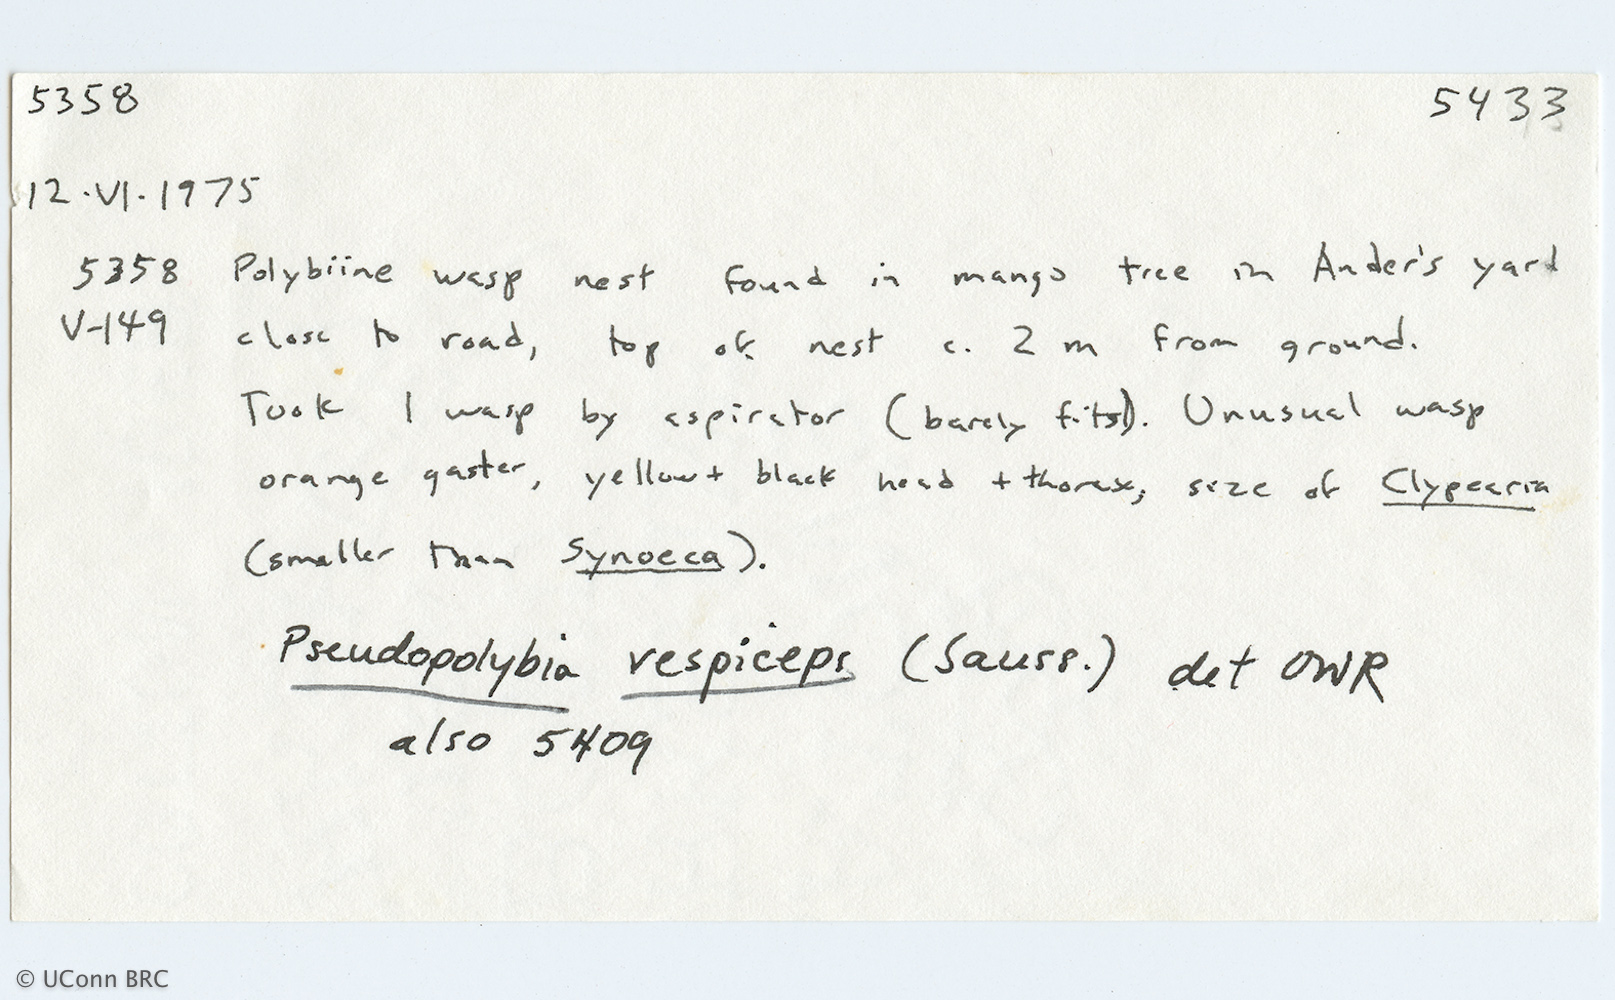 5358 5433
12.VI.1975
5358 Polybiine wasp nest found in mango tree in Ander's yard
V-149 close to road, top of nest c. 2 m from ground.
Took 1 wasp by aspirator (barely fits!). Unusual wasp
orange gaster, yellow + black head + thorax, size of Clypearia
(smaller than Synoeca).
Pseudopolybia vespiceps (Sauss.) det OWR
also 5409
© UConn BRC